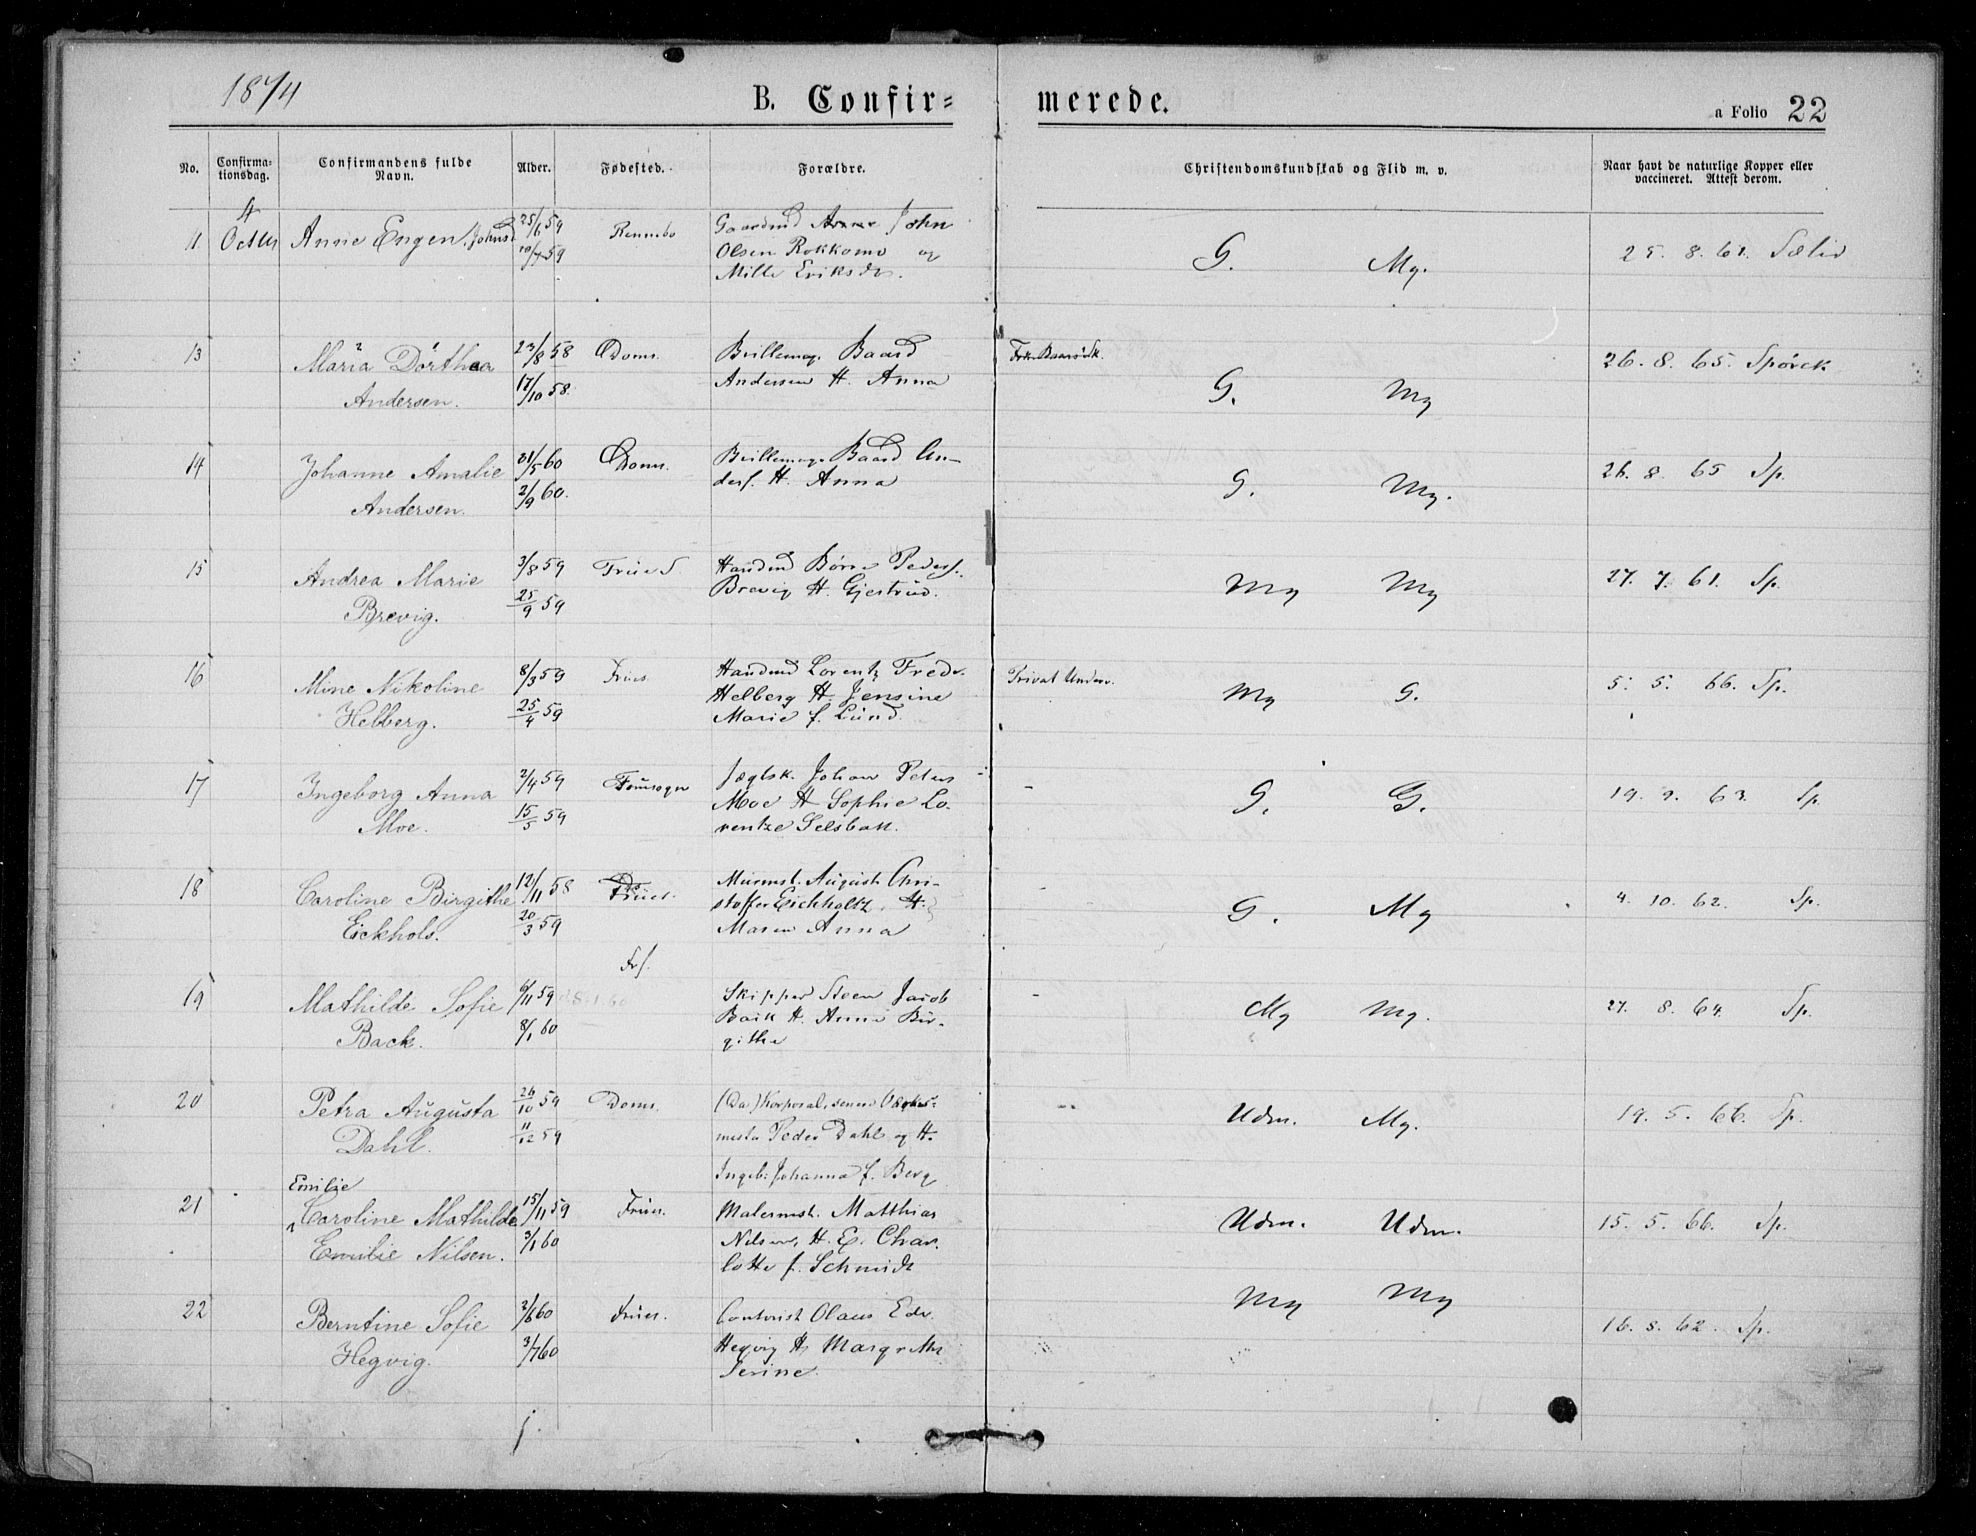 1874 B. Confir= merede. a Folio 22
No. Confirma-tionsdag. Confirmandens fulde Navn. Alder. Fødested. Forældre. Christendomskundskab og Flid m. v. Naar havt de naturlige Kopper eller vaccineret. Attest derom.
4
11 Octbr Anne Engen 25/6 59 Rennebo Gaardmd John
10/7 59 Olsen Rokkomo og G. Mg. 25. 8. 61.
Mille Eriksdr.
13 Maria Dorthea 23/8 58 Doms. Baard 26. 8. 65. Spörck
Andersen. 17/10 58. Andersen H. Anna G. Mg
14 Johanne Amalie 21/5 60 Doms. Baard An- 26. 8. 65 Sp.
Andersen. 2/9 60. ders. H. Anna G. Mg.
15 Andrea Marie 3/8 59 Frue S. Peders. 27. 7. 61. Sp.
Brevig. 25/9 59 Brevig H. Gjertrud. Mg Mg
16 Mine Nikoline 8/3 59 Frues Lorentz Fredr. Privat Underv. 5. 5. 66. Sp.
Helberg. 25/4 59 Helberg H. Jensine Mg G.
Marie f. Lund.
17 Ingeborg Anna 2/4 59 Jægtsk. Johan Peter 19. 9. 63. Sp.
Moe. 15/5 59 Moe H Sophie Lo- G. G.
rentze Selsbak.
18 Caroline Birgithe 12/11 58 Frues. Murmst. August Chri- 4. 10. 62. Sp.
Eickhols. 20/3 59 stoffer Eichholtz. H. G. Mg
Maren Anna
Fr S.
19 Mathilde Sofie 6/11 59 Skipper Steen Jacob 27. 8. 64. Sp.
Back. 8/1 60 Back H. Anne Bir- Mg Mg.
githe
20 Petra Augusta 26/10 59 Doms. 19. 5. 66. Sp.
Dahl. 11/12 59 Peder Dahl og H. Udm. Mg.
Ingeb. Johanna f. Berg
Emilie
21 Caroline Mathilde 15/11 59 Frues. Malermst. Matthias
Emilie Nilsen. 3/1 60 Nilsen, H. E. Char- Udm. Udm. 15. 5. 66. Sp.
lotte f. Schmidt
22 Berntine Sofie 2/6 60 Frues. Contorist Olaus Edv. Mg Mg
Hegvig. 3/7 60 Hegvig H. Margrethe 16. 8. 62. Sp.
Serine.